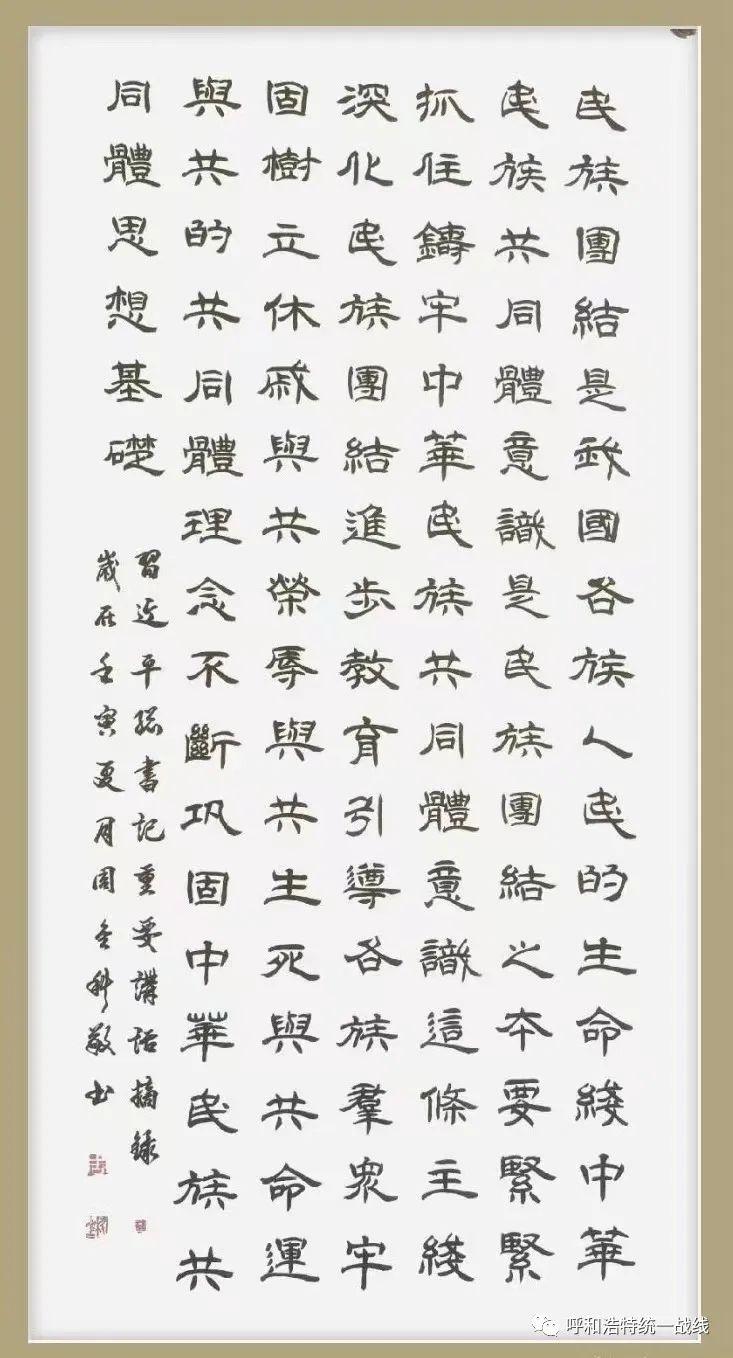 民族團結是我國各族人民的生命綫中華
民族共同體意識是民族團結之本要緊緊
抓住鑄牢中華民族共同體意識這條主綫
深化民族團結進步教育引導各族羣衆牢
固樹立休戚與共榮辱與共生死與共命運
與共的共同體理念不斷巩固中華民族共
同體思想基礎
習近平總書記重要講話摘録
歲在壬寅夏月周金科敬书
呼和浩特统一战线